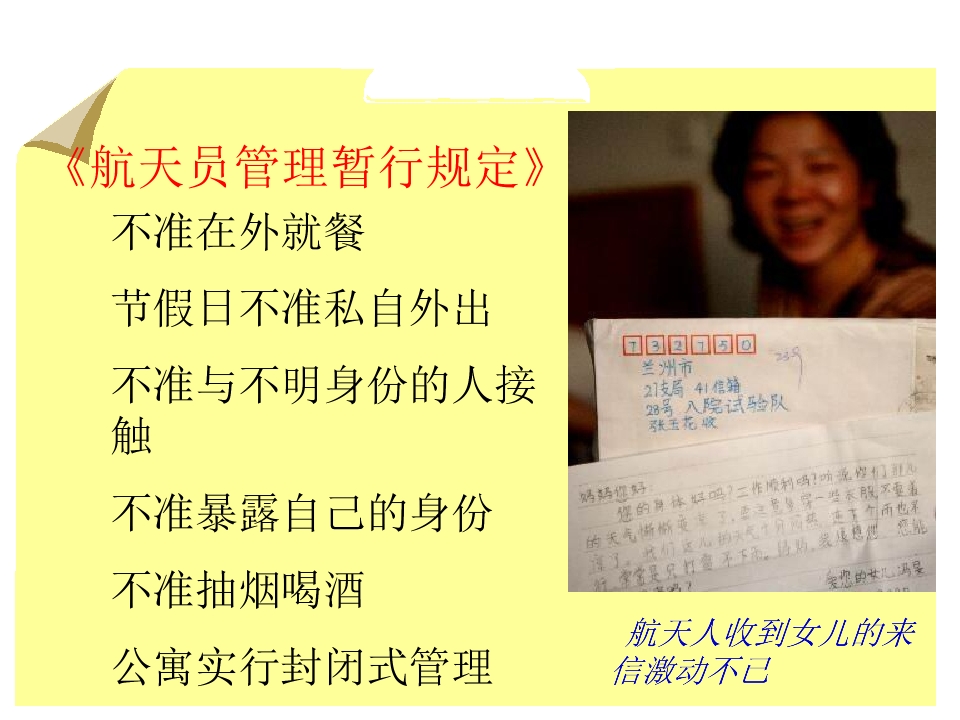 《航天员管理暂行规定》
不准在外就餐
节假日不准私自外出
不准与不明身份的人接
触
不准暴露自己的身份
不准抽烟喝酒
公寓实行封闭式管理
732750
23号
兰州市
27支局 41信箱
28号 八院试验队
张玉花收
妈妈您好:
您的身体好吗?工作顺利吗?听说您
的天气渐渐变
我们这儿的天气十分
爱您的女儿冯昱
航天人收到女儿的来
信激动不已